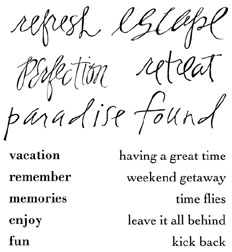 refresh escape
perfection retreat
paradise found
vacation having a great time
remember weekend getaway
memories time flies
enjoy leave it all behind
fun kick back